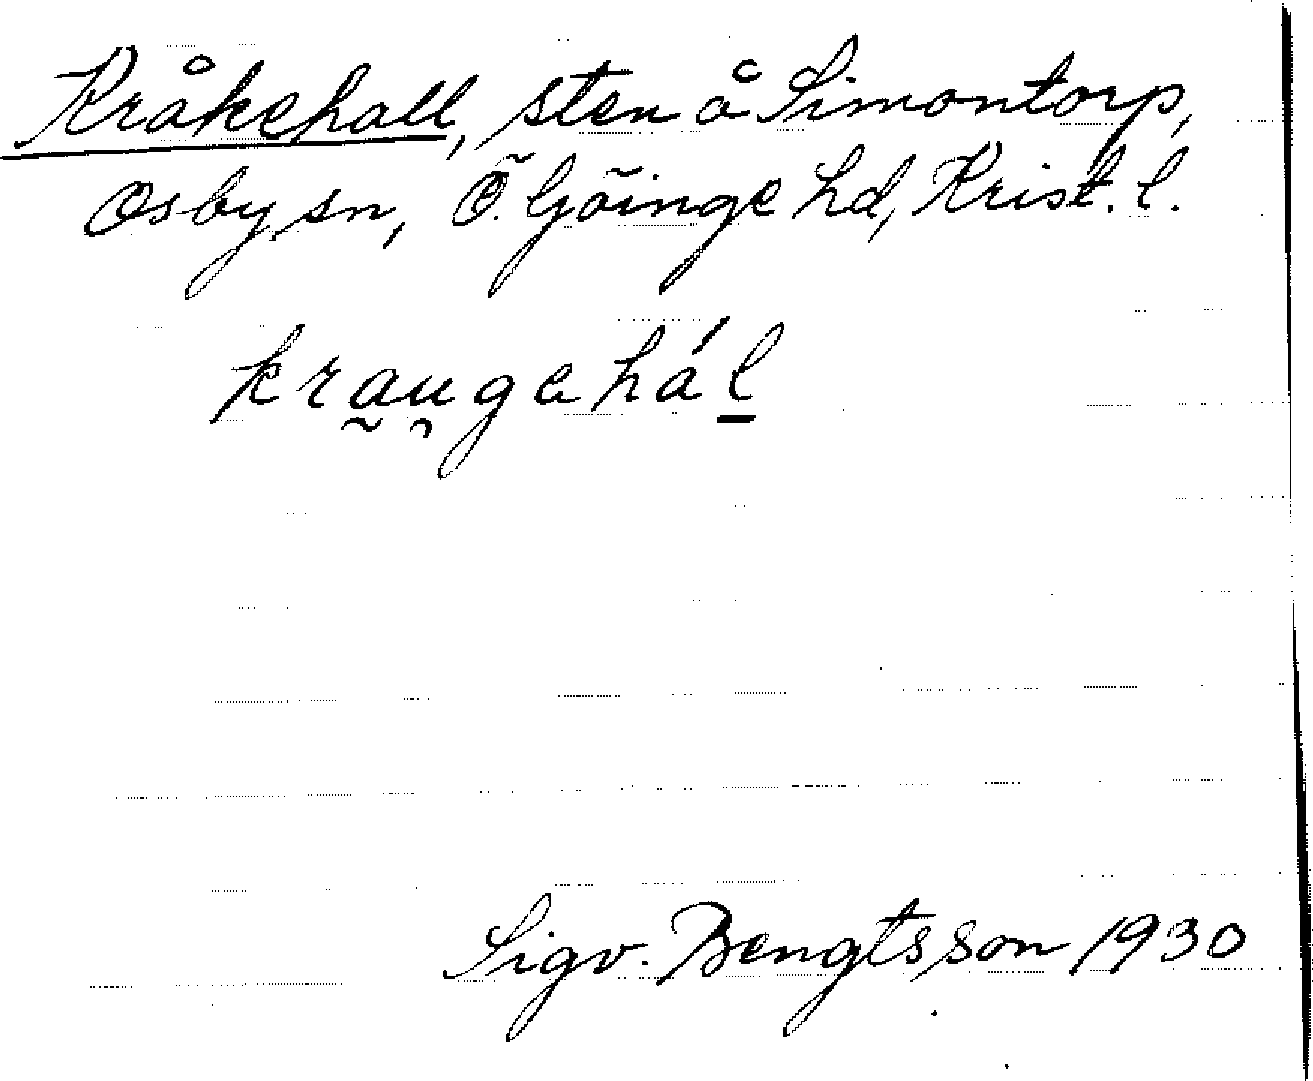 Kråkehall, sten å Simontorp,
Osby sn, Ö. Göinge hd, Krist. l.
kra̰u̯gahál̲
Sigv. Bengtsson 1930